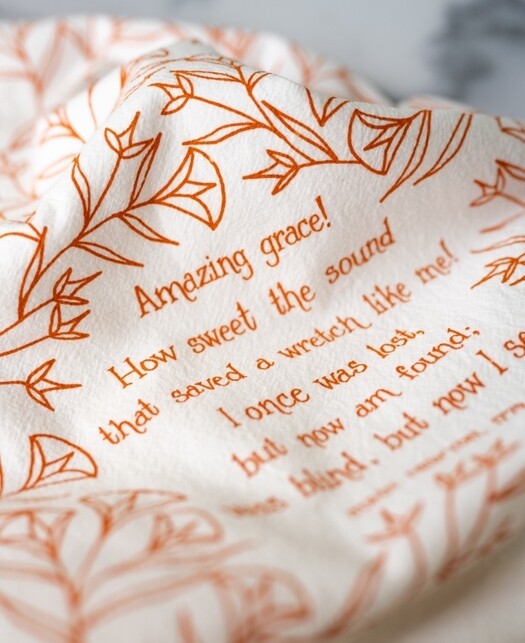 Amazing grace!
How sweet the sound
that saved a wretch like me!
I once was lost,
but now am found;
was blind, but now I